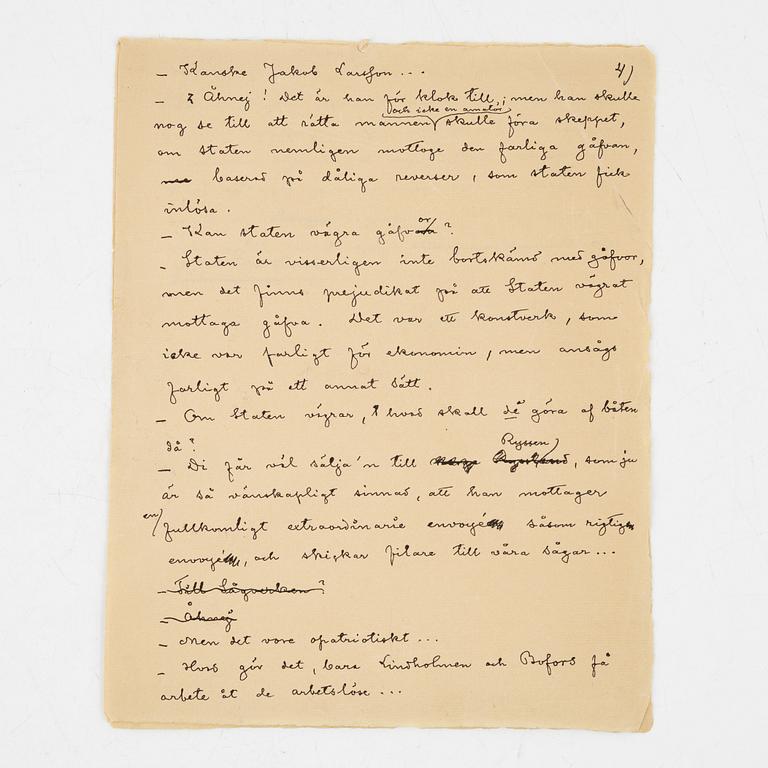 – Kanske Jakob Larsson ... 4)
– Åhnej! Det är han för klok till; men han skulle
och icke en amatör
nog se till att rätta männen skulle föra skeppet,
om staten nemligen mottoge den farliga gåfvan,
baserad på dåliga reverser, som staten fick
inlösa.
– Kan staten vägra gåfvor?
– Staten är visserligen inte bortskämd med gåfvor,
men det finns prejudikat på att Staten vägrat
mottaga gåfva. Det var ett konstverk, som
icke var farligt för ekonomin, men ansågs
farligt på ett annat sätt.
– Om Staten vägrar, hvad skall dé göra af båten
då?
– Di får väl sälja'n till Ryssen, som ju
är så vänskapligt sinnad, att han mottager
en fullkomligt extraordinarie envoyé såsom riktig
envoyé, och skickar filare till våra sågar ...
– Till Sågverken?
– Åhnej
– Men det vore opatriotiskt ...
– Hvad gör det, bara Lindholmen och Bofors få
arbete åt de arbetslöse ...